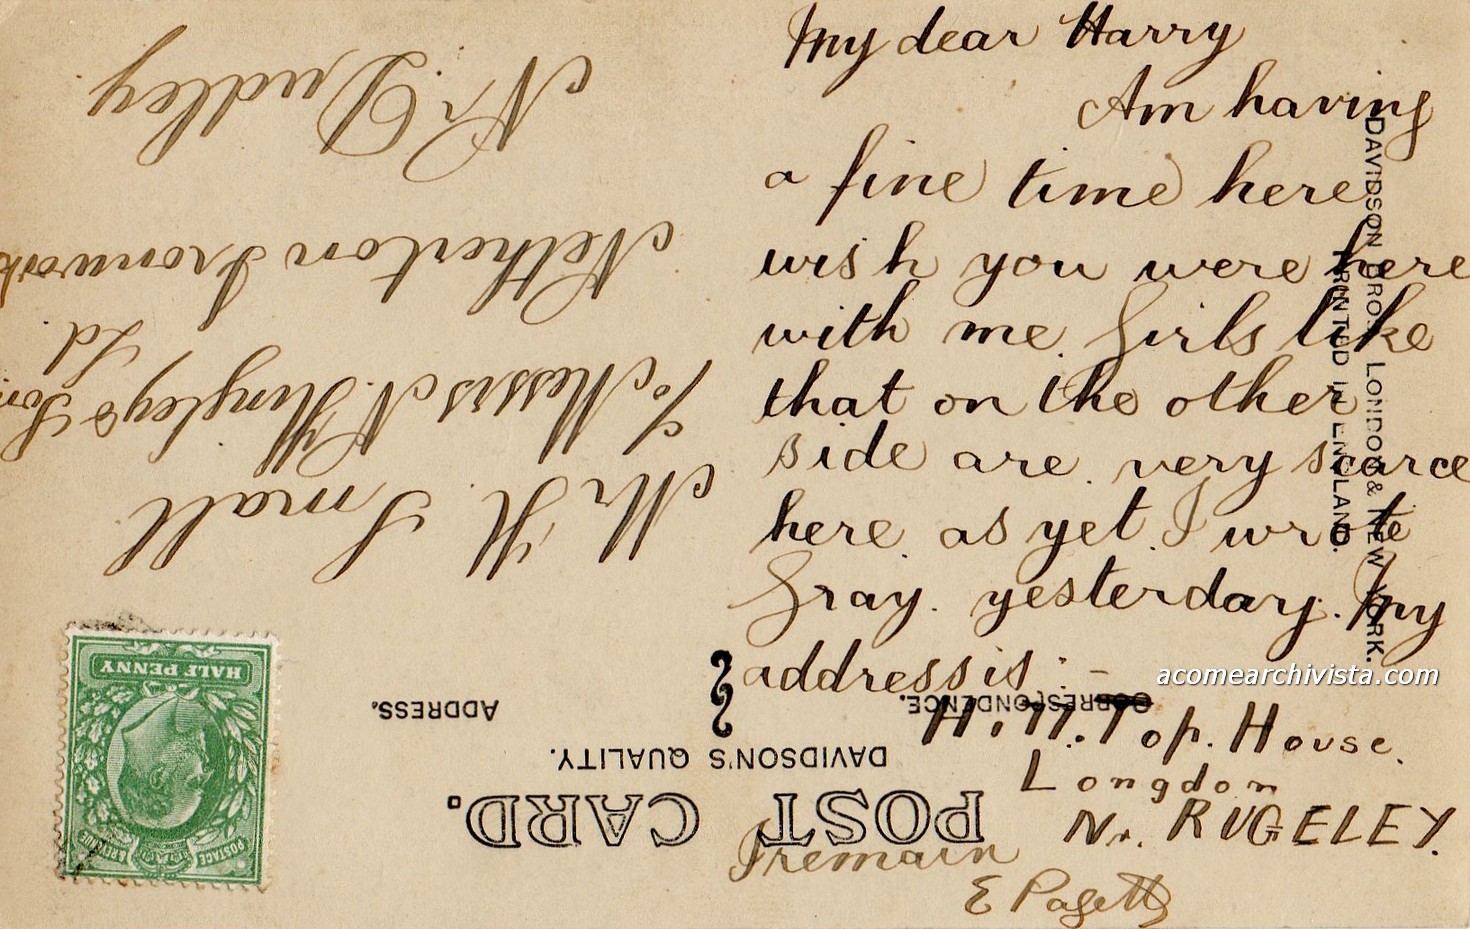 My dear Harry
Am having
a fine time here
wish you were here
with me. Girls like
that on the other
side are very scarce
here as yet. I wrote
Gray. yesterday. My
address is : -
Hill. Top. House.
Longdon
Nr. RUGELEY.
I remain
E Pagett
DAVIDSON BROS. LONDON & NEW YORK.
PRINTED IN ENGLAND.
acomearchivista.com
POST CARD.
DAVIDSON'S QUALITY.
CORRESPONDENCE.
ADDRESS.
HALF PENNY
POSTAGE & REVENUE
Mr H. Small
℅ Messrs N. Hingley & Son
Ld
Netherton Ironwork
Nr Dudley